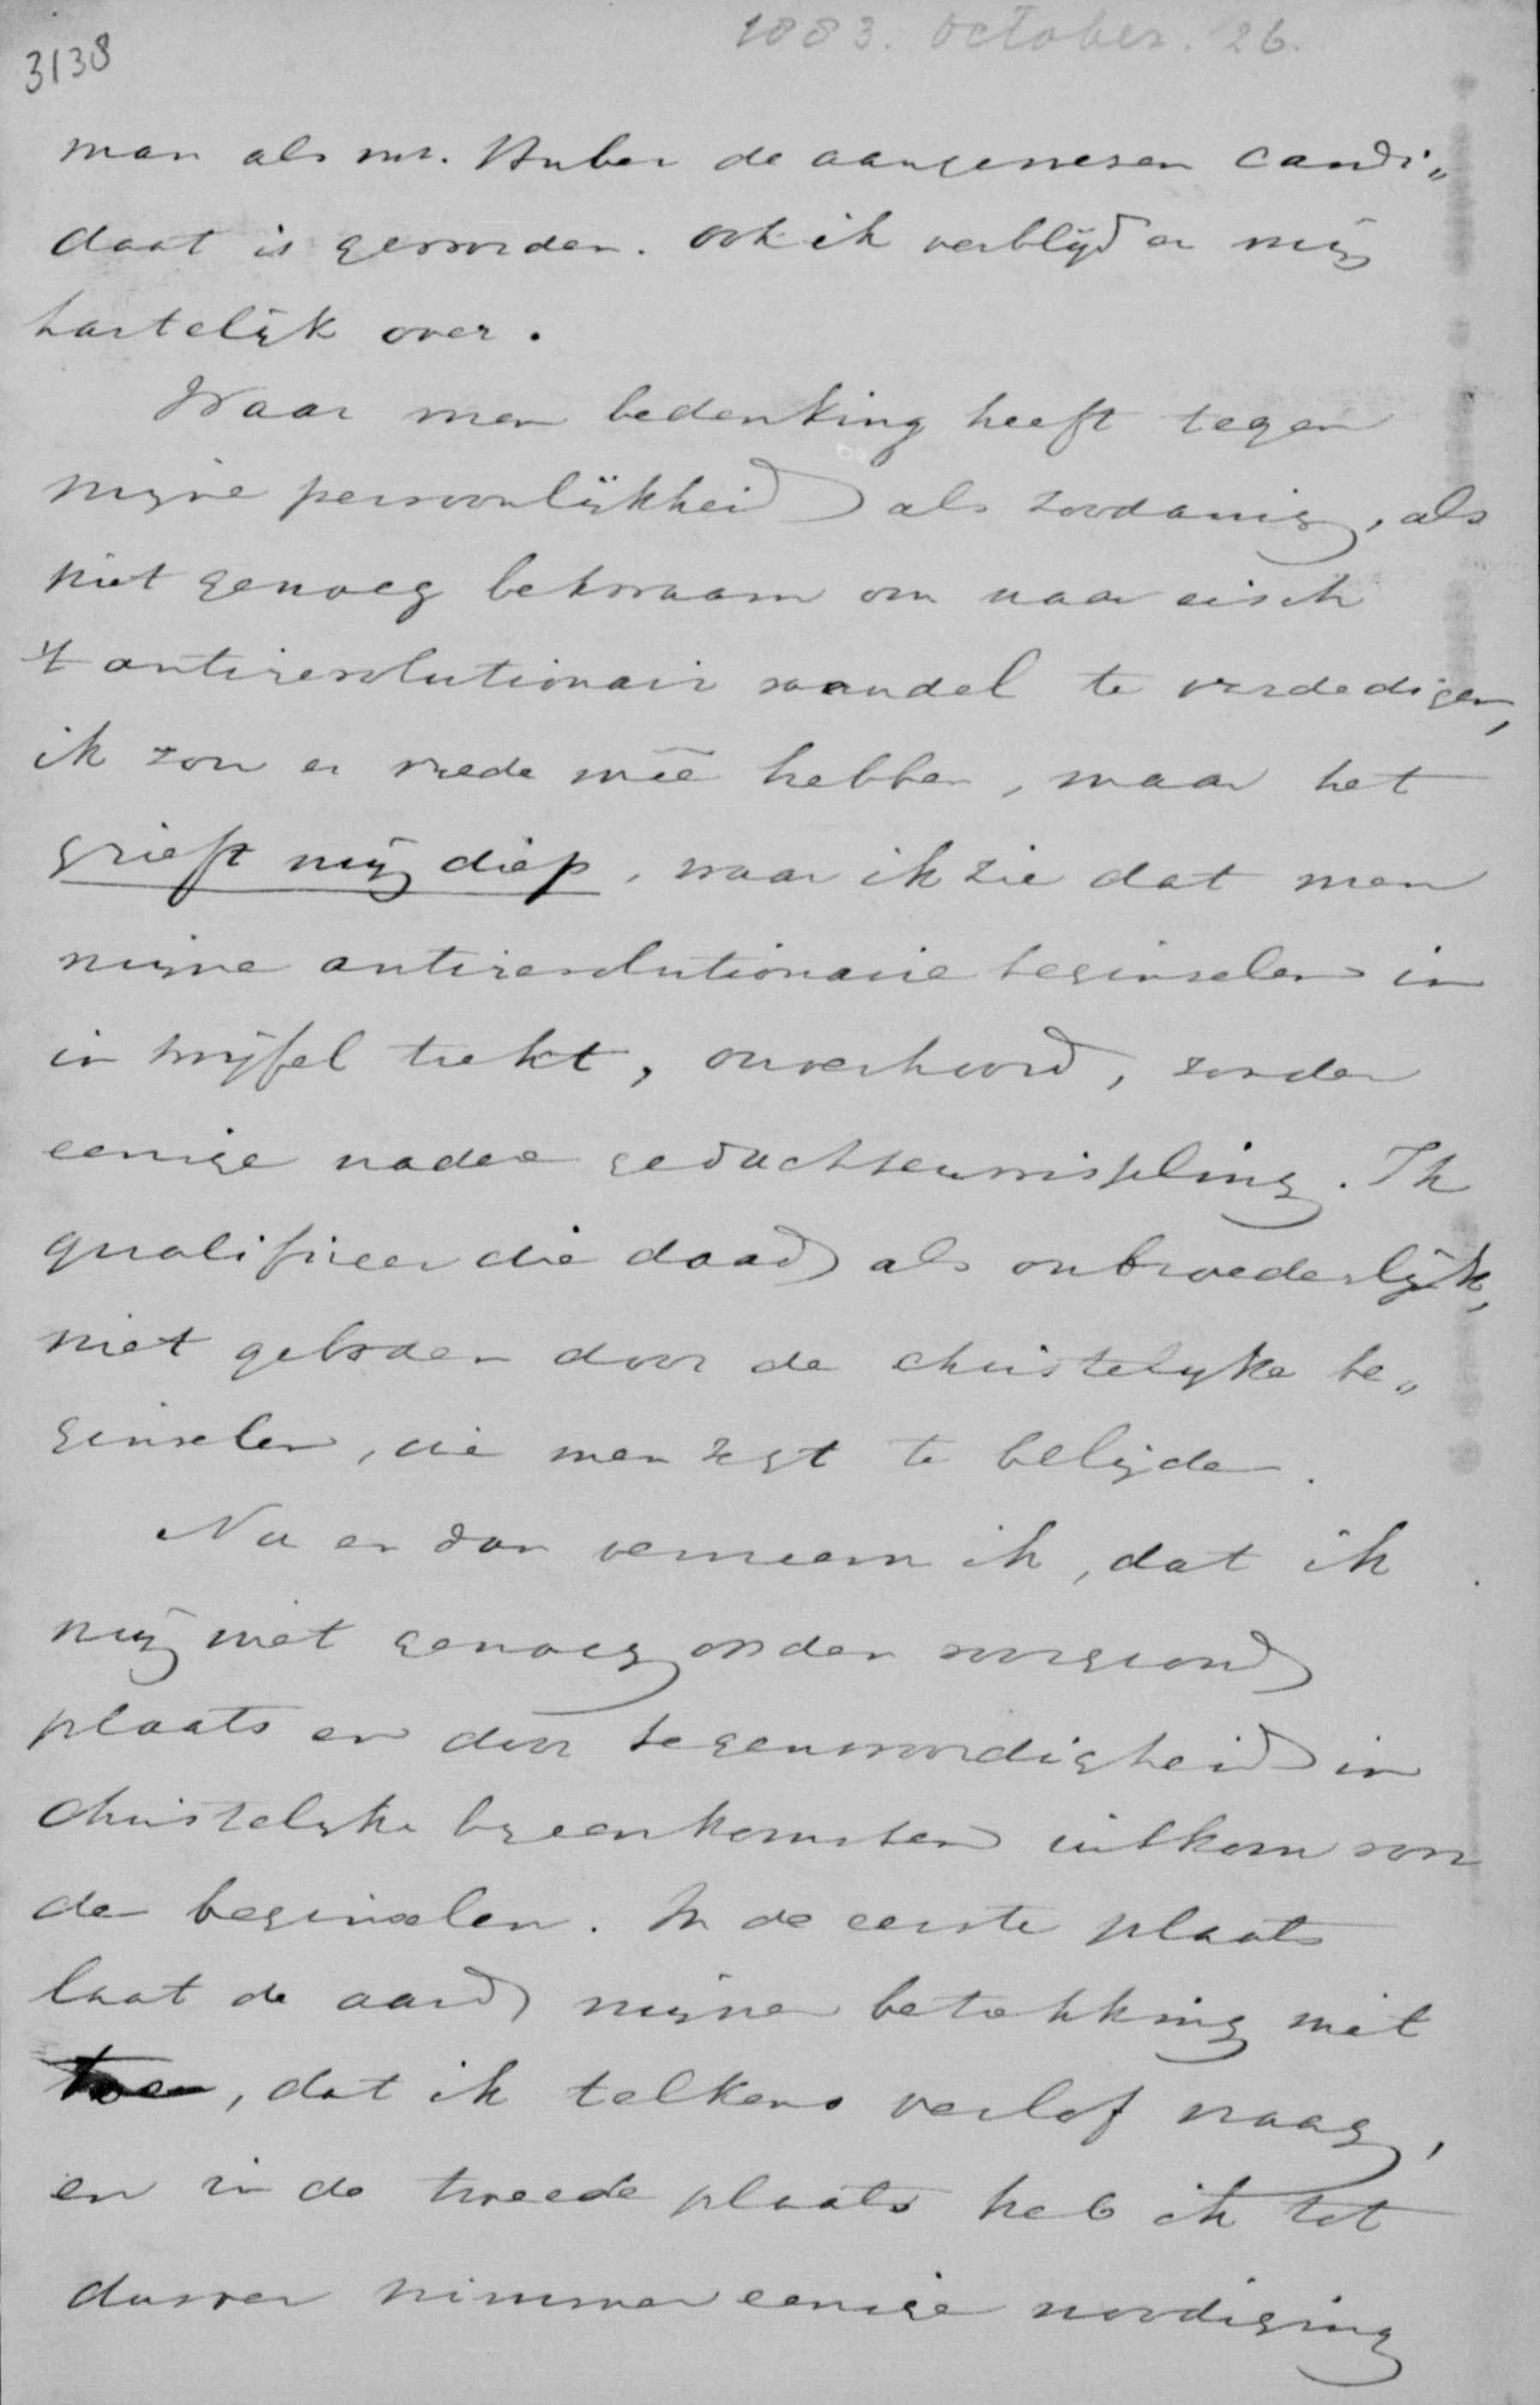 1883. October. 26.
3138
man als mr. Huber de aangewesen candi„
daat is geworden. Ook ik verblijd er mij
hartelijk over.
Waar men bedenking heeft tegen
mijne persoonlijkheid als zoodanig, als
niet genoeg bekwaam om naar eisch
't antirevolutionair vaandel te verdedigen,
ik zou er vrede meê hebben, maar het
grieft mij diep, waar ik zie dat men
mijne antirevolutionaire beginselen in
in twijfel trekt, onverhoord, zonder
eenige nadere gedachtenwisseling. Ik
qualificeer die daad als onbroederlijk,
niet geboden door de christelijke be„
ginselen, die men zegt te belijden.
Nu en dan verneem ik, dat ik
mij niet genoeg op den voorgrond
plaats en door tegenwoordigheid in
christelijke bijeenkomsten uitkom voor
de beginselen. In de eerste plaats
laat de aard mijner betrekking niet
toe, dat ik telkens verlof vraag,
en in de tweede plaats heb ik tot
dusver nimmer eenige noodiging